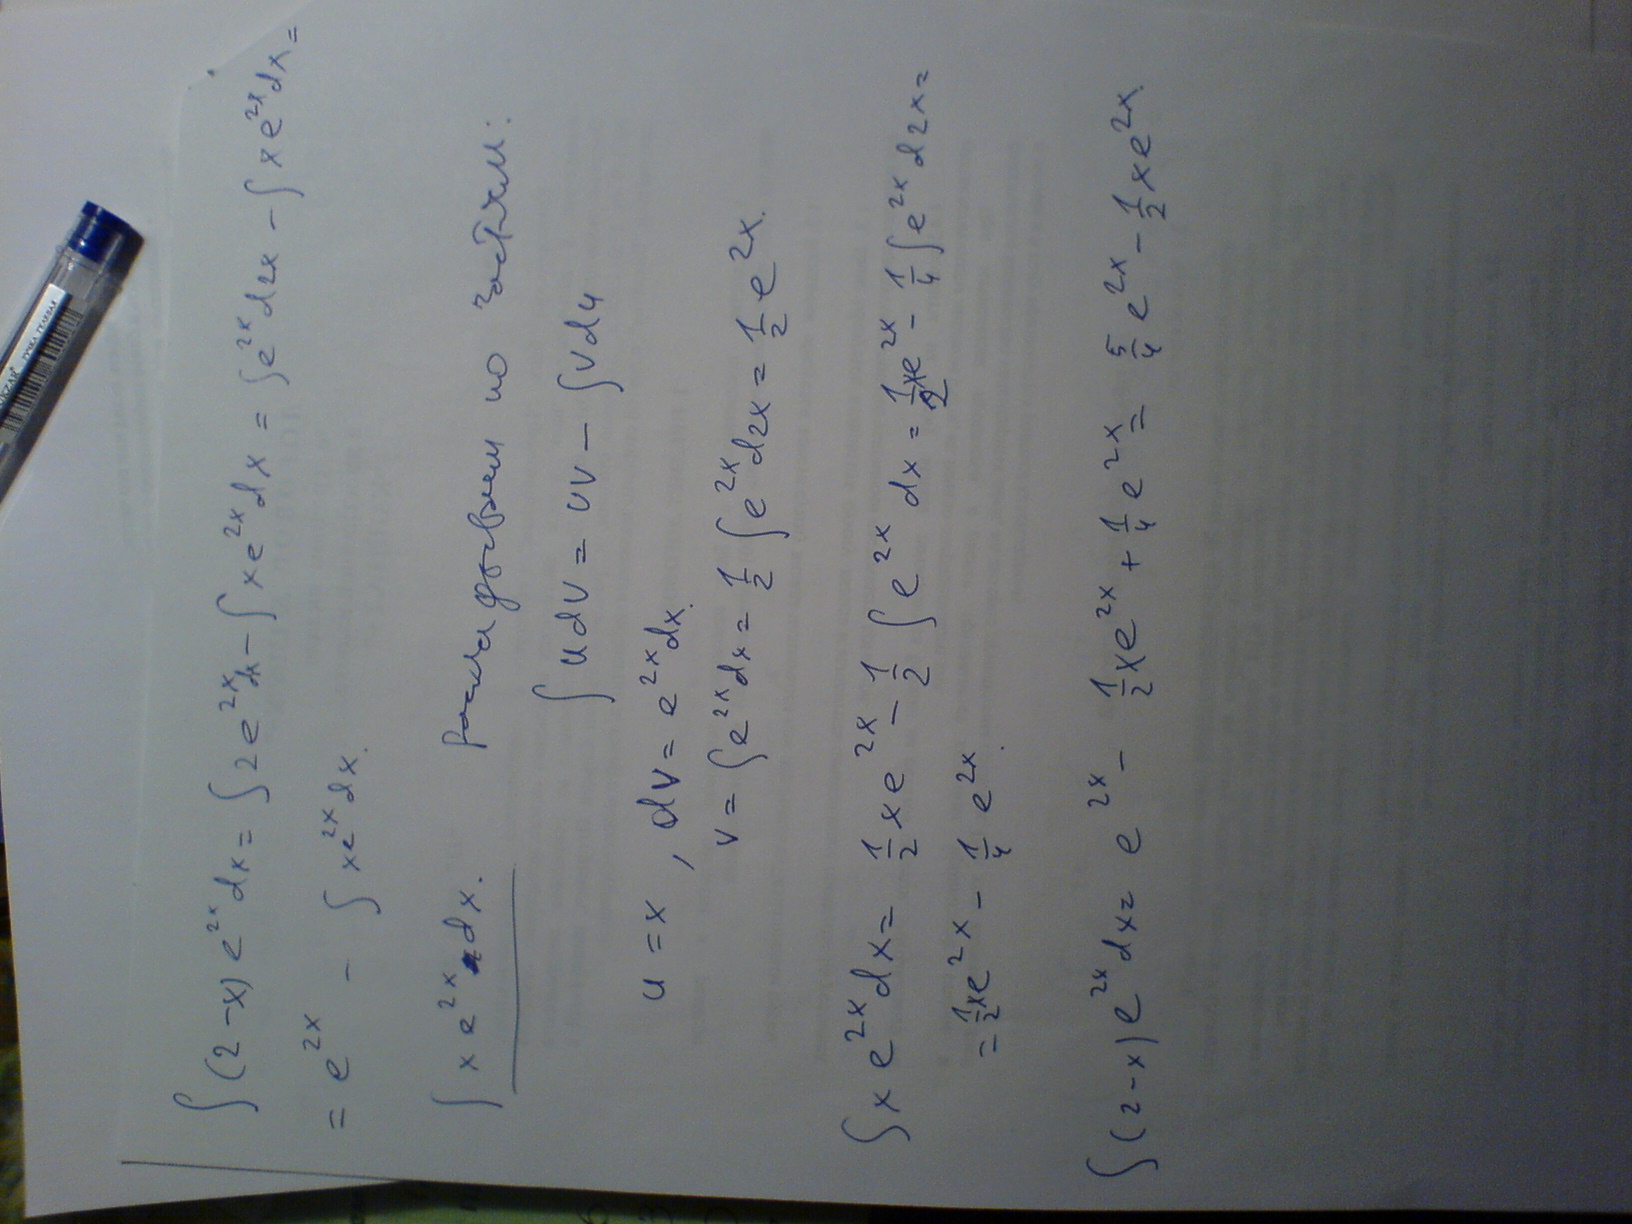 ∫(2-x)e^{2x}dx = ∫2e^{2x}dx - ∫xe^{2x}dx = ∫e^{2x}d2x - ∫xe^{2x}dx =
= e^{2x} - ∫xe^{2x}dx.
∫xe^{2x}dx. по частям:
∫udv = uv - ∫vdu
u = x, dv = e^{2x}dx.
v = ∫e^{2x}dx = 1/2 ∫e^{2x}d2x = 1/2 e^{2x}.
∫xe^{2x}dx = 1/2 xe^{2x} - 1/2 ∫e^{2x}dx = 1/2 xe^{2x} - 1/4 ∫e^{2x}d2x =
= 1/2 xe^{2x} - 1/4 e^{2x}.
∫(2-x)e^{2x}dx = e^{2x} - 1/2 xe^{2x} + 1/4 e^{2x} = 5/4 e^{2x} - 1/2 xe^{2x}.
РУЧКА ГЕЛЕВАЯ